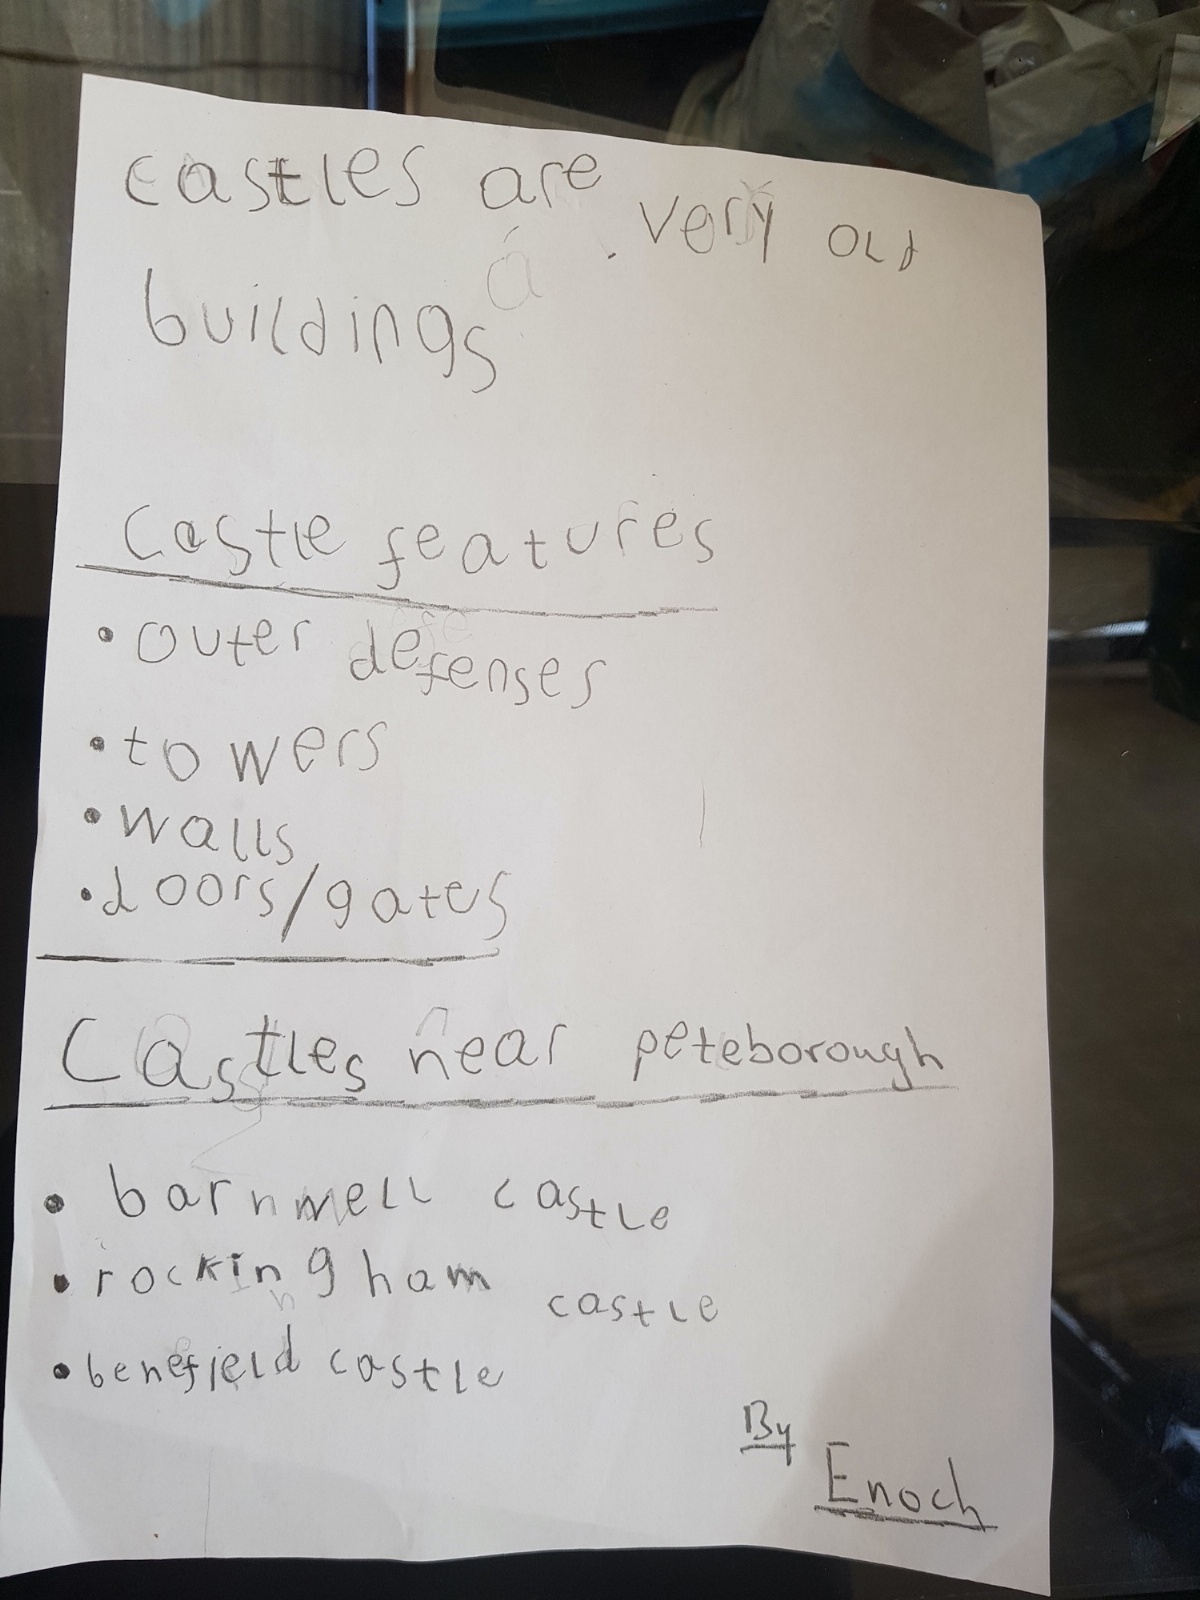 castles are very old
buildings
Castle features
• outer defenses
• towers
• walls
• doors/gates
Castles near peteborough
• barnwell castle
• rockingham castle
• benefield castle
By
Enoch